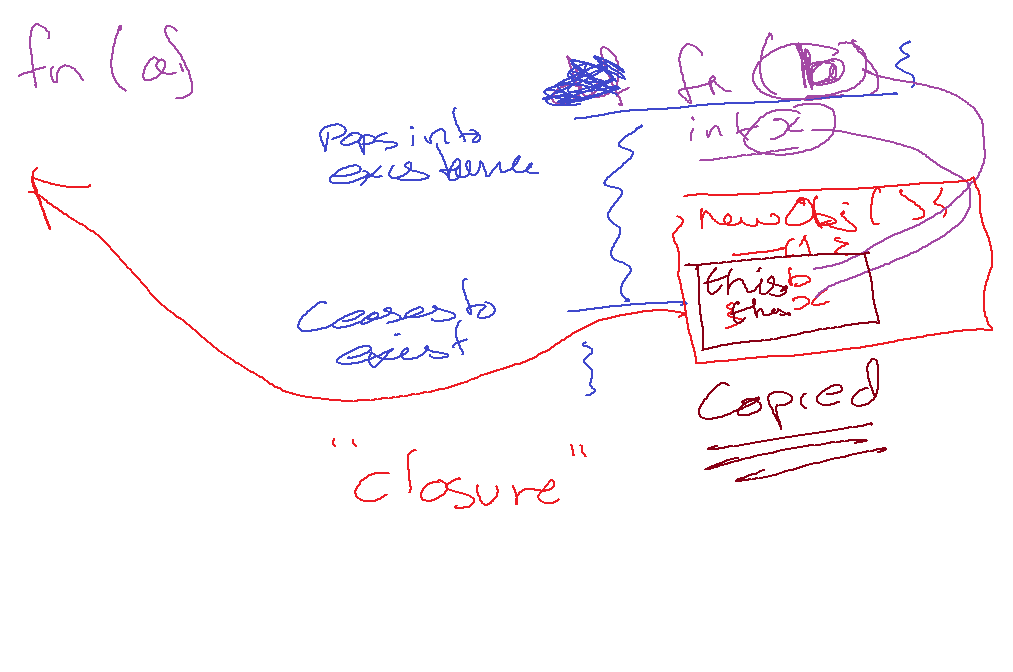 fn (a)
fn (b) {
int x
Pops into
existence
new Obj() {
this.b
this.x
Ceases to
exist
}
Copied
"closure"